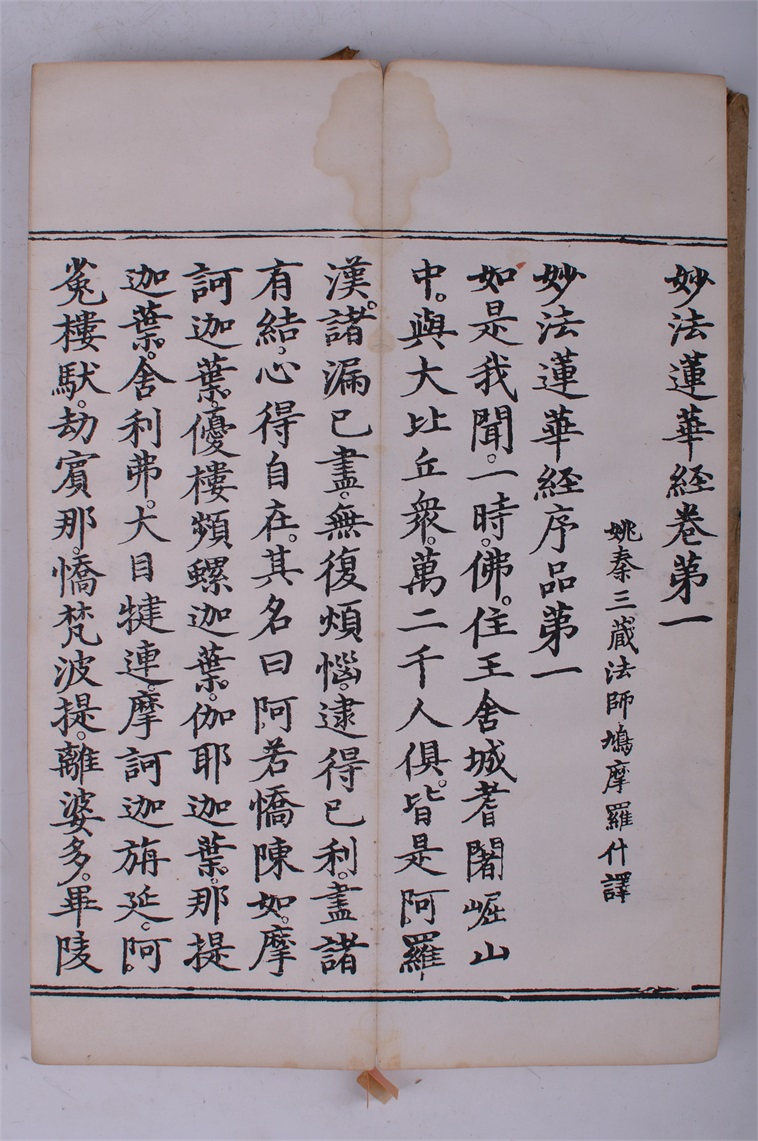 妙法蓮華經卷第一
姚秦三藏法師鳩摩羅什譯
妙法蓮華經序品第一
如是我聞。一時。佛。住王舍城耆闍崛山
中。與大比丘眾。萬二千人俱。皆是阿羅
漢。諸漏已盡。無復煩惱。逮得已利。盡諸
有結。心得自在。其名曰阿若憍陳如。摩
訶迦葉。優樓頻螺迦葉。伽耶迦葉。那提
迦葉。舍利弗。大目犍連。摩訶迦旃延。阿
㝹樓馱。劫賓那。憍梵波提。離婆多。畢陵